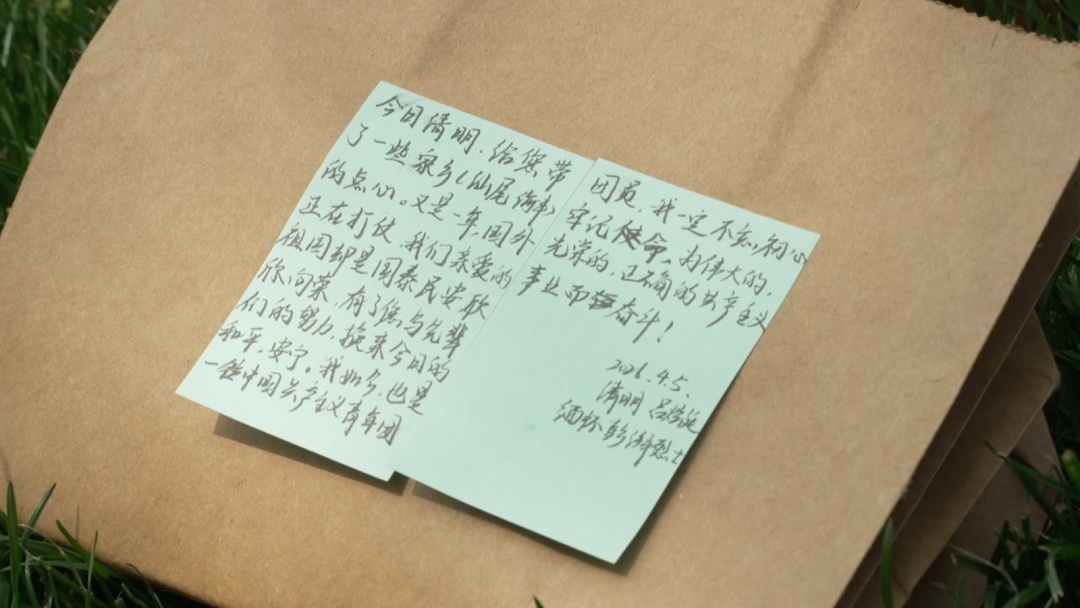 今日清明，给您带
了一些家乡（汕尾海丰）
的点心。又是一年，国外
正在打仗，我们亲爱的
祖国却是国泰民安欣
欣向荣，有了您与先辈
们的努力，换来今日的
和平，安宁。我如今，也是
一触中国共产主义青年团
团员，我一定不忘初心
牢记使命，为伟大的，
光荣的，正确的共产主义
事业而奋斗！
2026.4.5.
清明
缅怀彭湃烈士